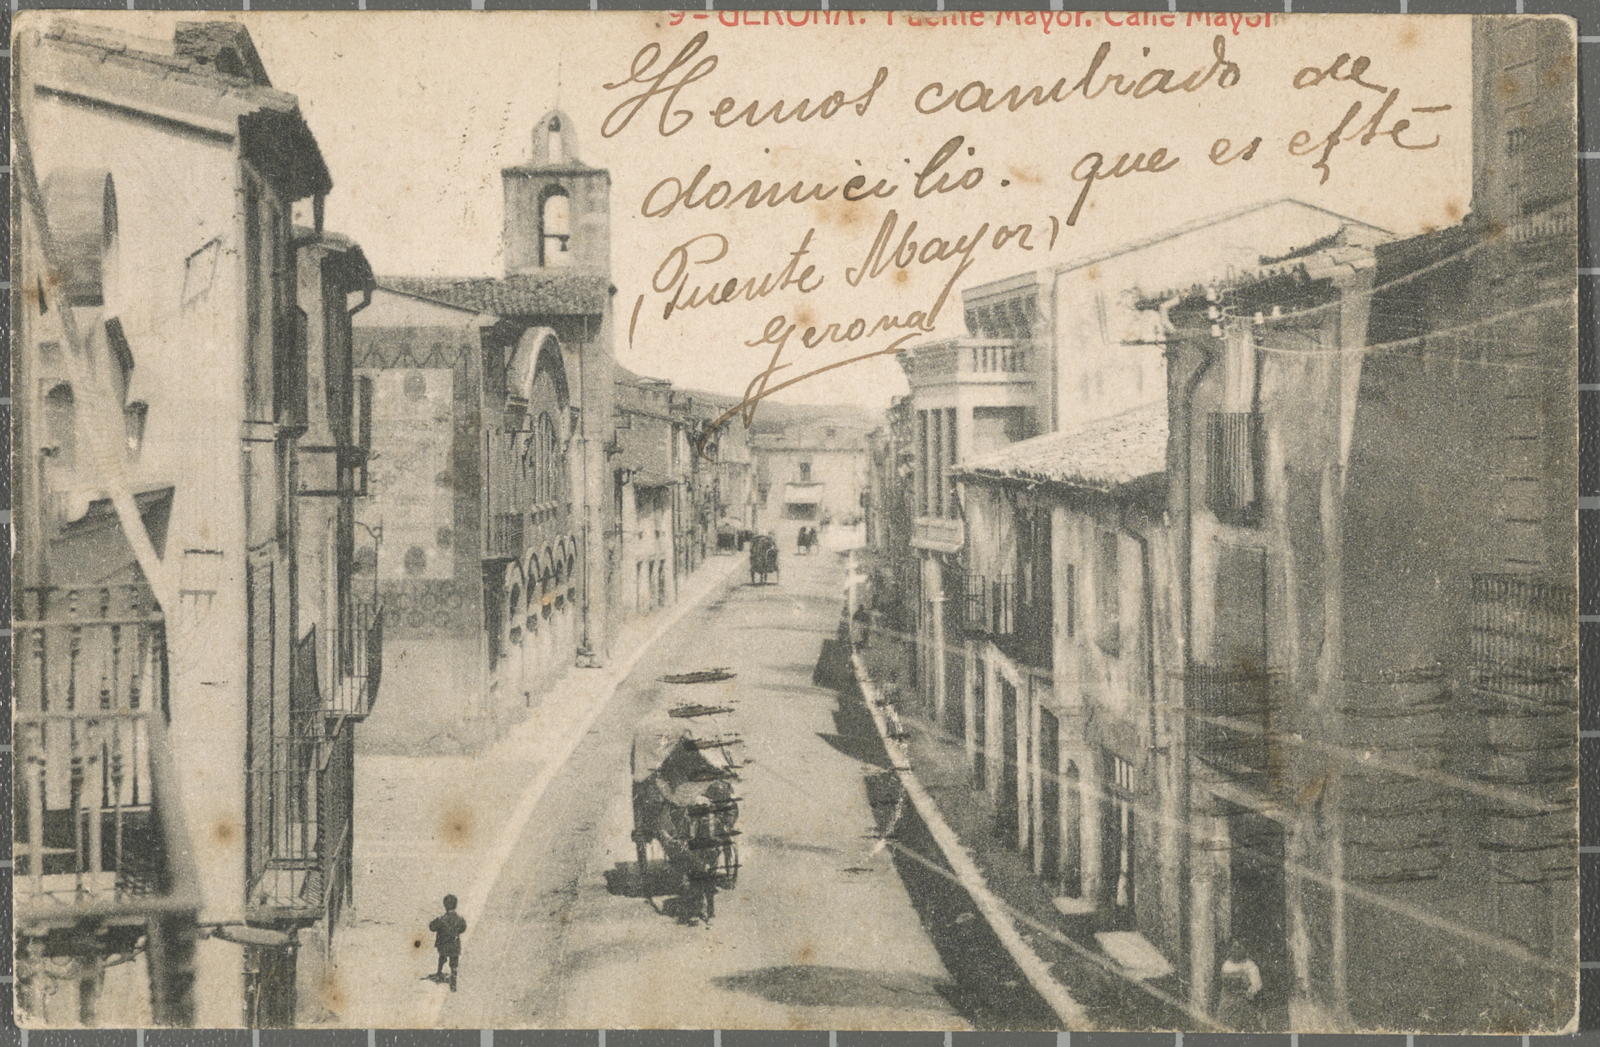 9 - GERONA. Puente Mayor. Calle Mayor
Hemos cambiado de
domicilio. que es este
(Puente Mayor)
Gerona